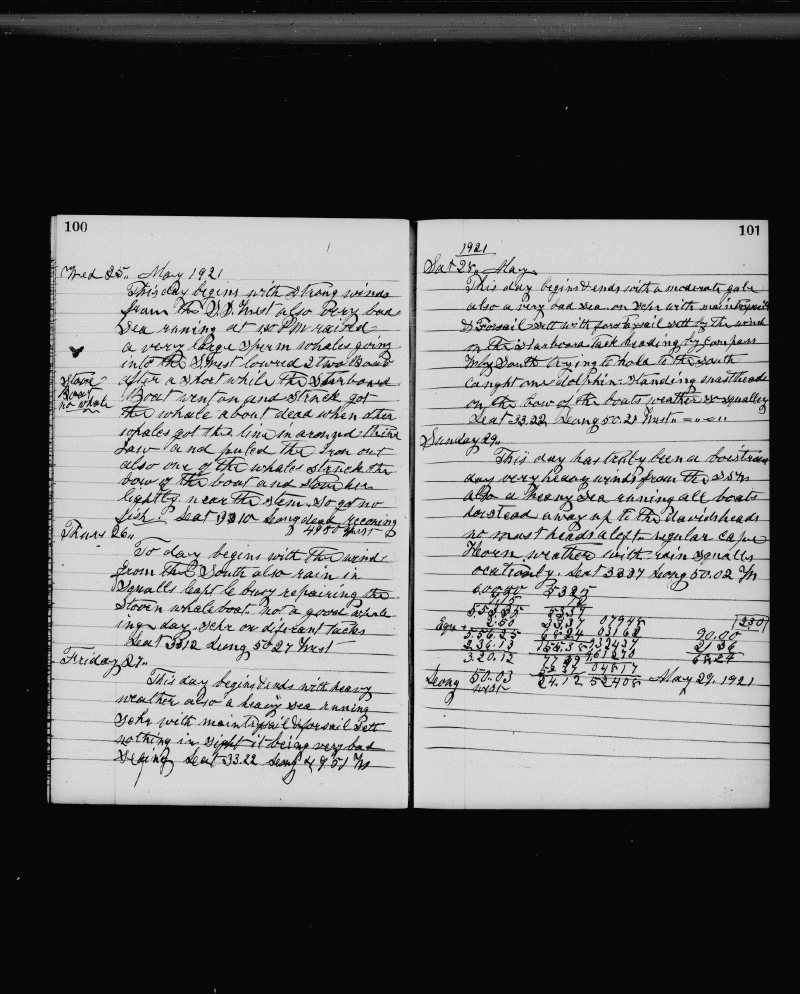 100
Wed 25" May 1921
This day begins with strong winds
from the S.S. West also very bad
sea runing at PM raised
a very large sperm whales going
into the S West lowred 2 two Boats
after a short while the Starboard
Stove
Boat
no whale
Boat went on and struck got
the whale about dead when other
whales got the line in around there
Jaw and puled the Iron out
also one of the whales struck the
bow of the boat and stove her
lightly near the stem. So got no
fish Leat 33 10 Long dead reconing
49 50 West
Thurs 26"
To day begins with the wind
from the South also rain in
Squalls busy repairing the
Stoven whaleboat. Not a good whale
ing day. Schr on diferant tacks
Leat 3312 Long 50 27 West
Friday 27"
This day begins & ends with heavy
weather also a heavy sea runing
Schr with maintrysail & forsail Sett
nothing in sight it being very bad
Seeing Leat 33.22 Long 49.51 W
101
1921
Sat 28" May
This day begins & ends with a moderate gale
also a very bad sea on Schr with maintrysail
& Forsail sett with foretaysail sett by the wind
on the Starboard tack heading by compass
W by South trying to hold to the South
caught one dolphin. Standing mastheads
on the bow of the boats weather so squalley
Leat 33.22 Long 50.21 West
Sunday 29"
This day has truly been a boistrous
day very heavy winds from the SSW
also a heavy sea runing all boats
horstead away up to the davidsheads
no mast heads aloft regular cape
Horn weather with rain squalls
ocationly. Leat 3337 Long 50.02 W
5325
12
5.55.35 5337
Equ + 2.50 33.37 07948 230
5.56.25 68.24 03162 90.00
2.36.13 155.38 932437 21 36
3.20.12 77 49 961270 68.24
33 37 04817
Long 50.03 24.12 52408 May 29. 1921
West